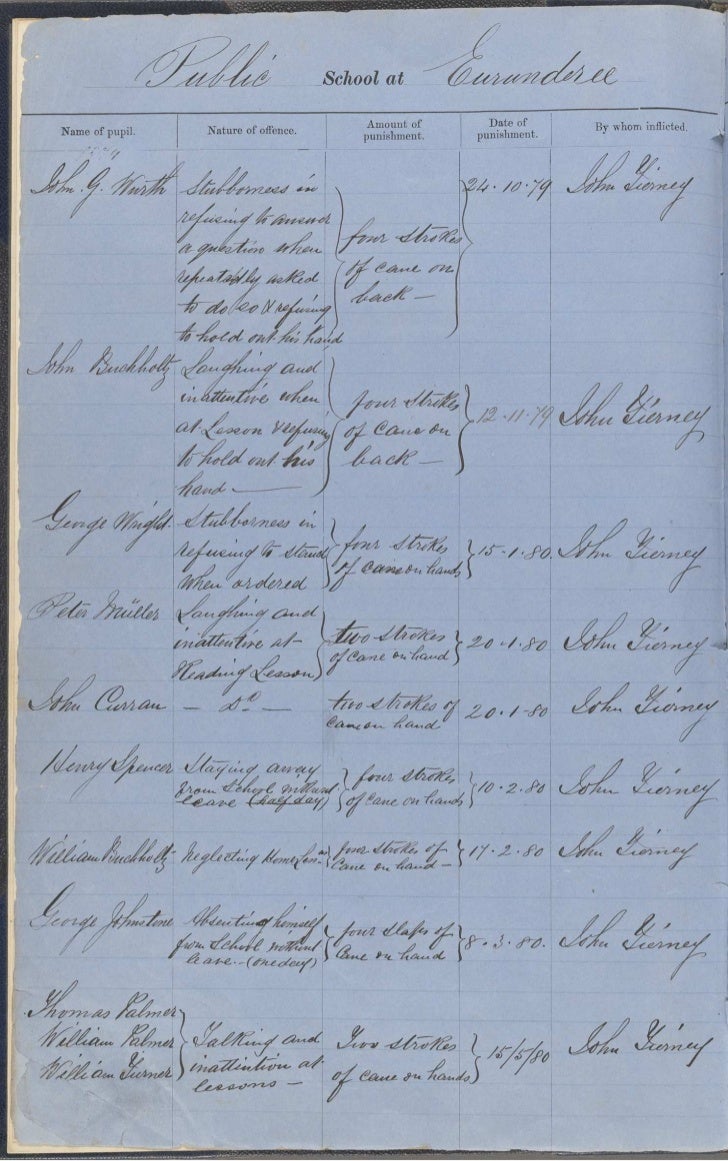 Public School at Eurunderee
Name of pupil. Nature of offence. Amount of punishment. Date of punishment. By whom inflicted.
1879
John. G. Wurth Stubborness in 24.10.79 John Tierney
refusing to answer
a question when four strokes
repeatedly asked of cane on
to do so & refusing back —
to hold out his hand
John Buchholtz Laughing and
inattentive when four strokes
at Lesson & refusing of cane on 12.11.79 John Tierney
to hold out his back —
hand —
George Wright. Stubborness in
refusing to stand four strokes 15.1.80. John Tierney
when ordered of cane on hands
Peter Müller Laughing and
inattentive at two strokes 20.1.80 John Tierney
Reading Lesson of cane on hand
John Curran — Do — two strokes of 20.1-80 John Tierney
cane on hand
Henry Spencer Staying away four strokes
from School without of cane on hands 10.2.80 John Tierney
leave (half day)
William Buchholtz Neglecting Home Lesson four strokes of 17.2.80 John Tierney
Cane on hand —
George Johnstone Absenting himself four slaps of
from School without Cane on hand 8.3.80. John Tierney
leave — (one day)
Thomas Palmer
William Palmer Talking and Two strokes 15/5/80 John Tierney
William Turner inattintion at of cane on hands
lessons —